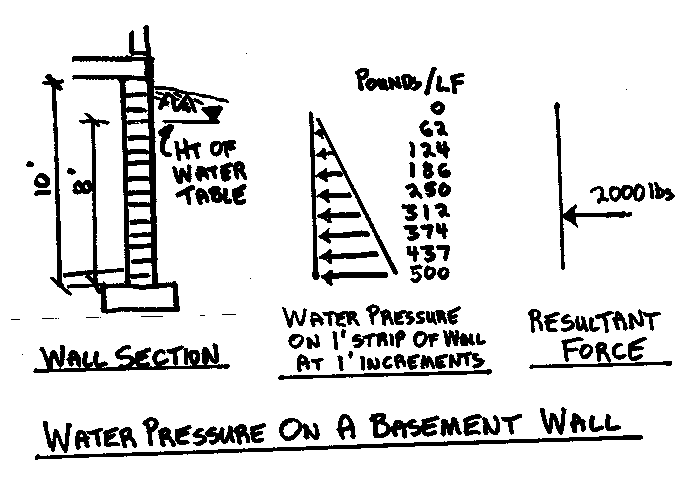 POUNDS/LF
0
62
124
186
250
312
374
437
500
10'
8'
HT OF
WATER
TABLE
2000 lbs
WALL SECTION
WATER PRESSURE
ON 1' STRIP OF WALL
AT 1' INCREMENTS
RESULTANT
FORCE
WATER PRESSURE ON A BASEMENT WALL